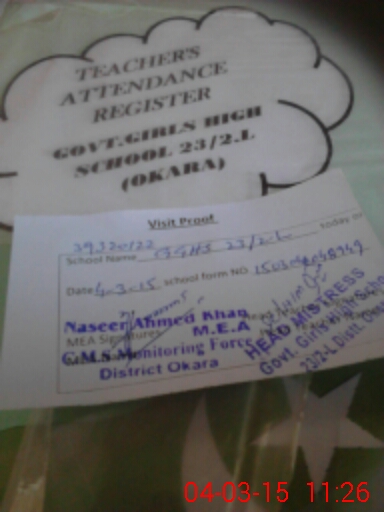 TEACHER'S
ATTENDANCE
REGISTER
GOVT.GIRLS HIGH
SCHOOL 23/2.L
(OKARA)
Visit Proof
39320122
School Name GGHS 23/2-L today on
Date 4-3-15 school form NO
Naseer Ahmed Khan
MEA Signatures M.E.A
C.M.S Monitoring Force
District Okara
HEAD MISTRESS
Govt. Girls High
23/2-L Distt.
04-03-15 11:26